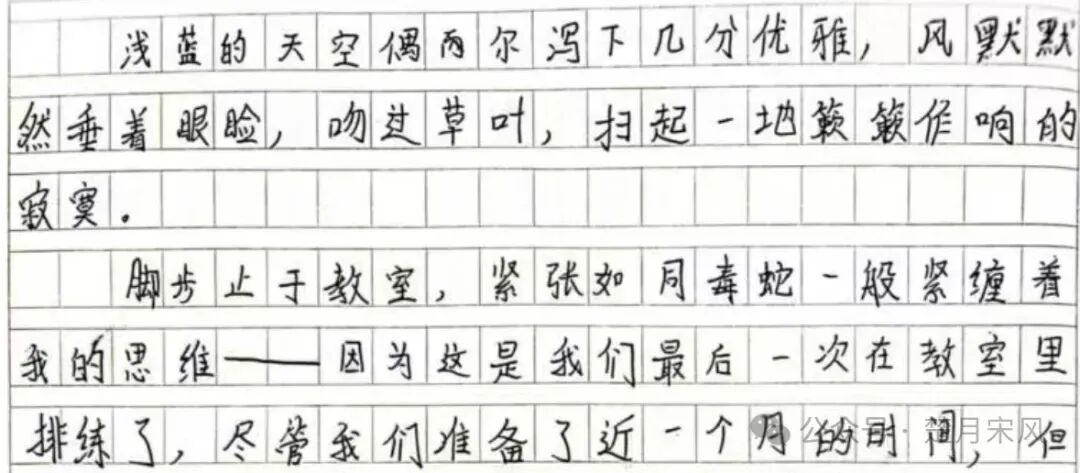 浅蓝的天空偶而尔泻下几分优雅，风默默
然垂着眼睑，吻过草叶，扫起一地簌簌作响的
寂寞。
脚步止于教室，紧张如同毒蛇一般紧缠着
我的思维——因为这是我们最后一次在教室里
排练了，尽管我们准备了近一个月的时间，但
公众号·楚月宋风